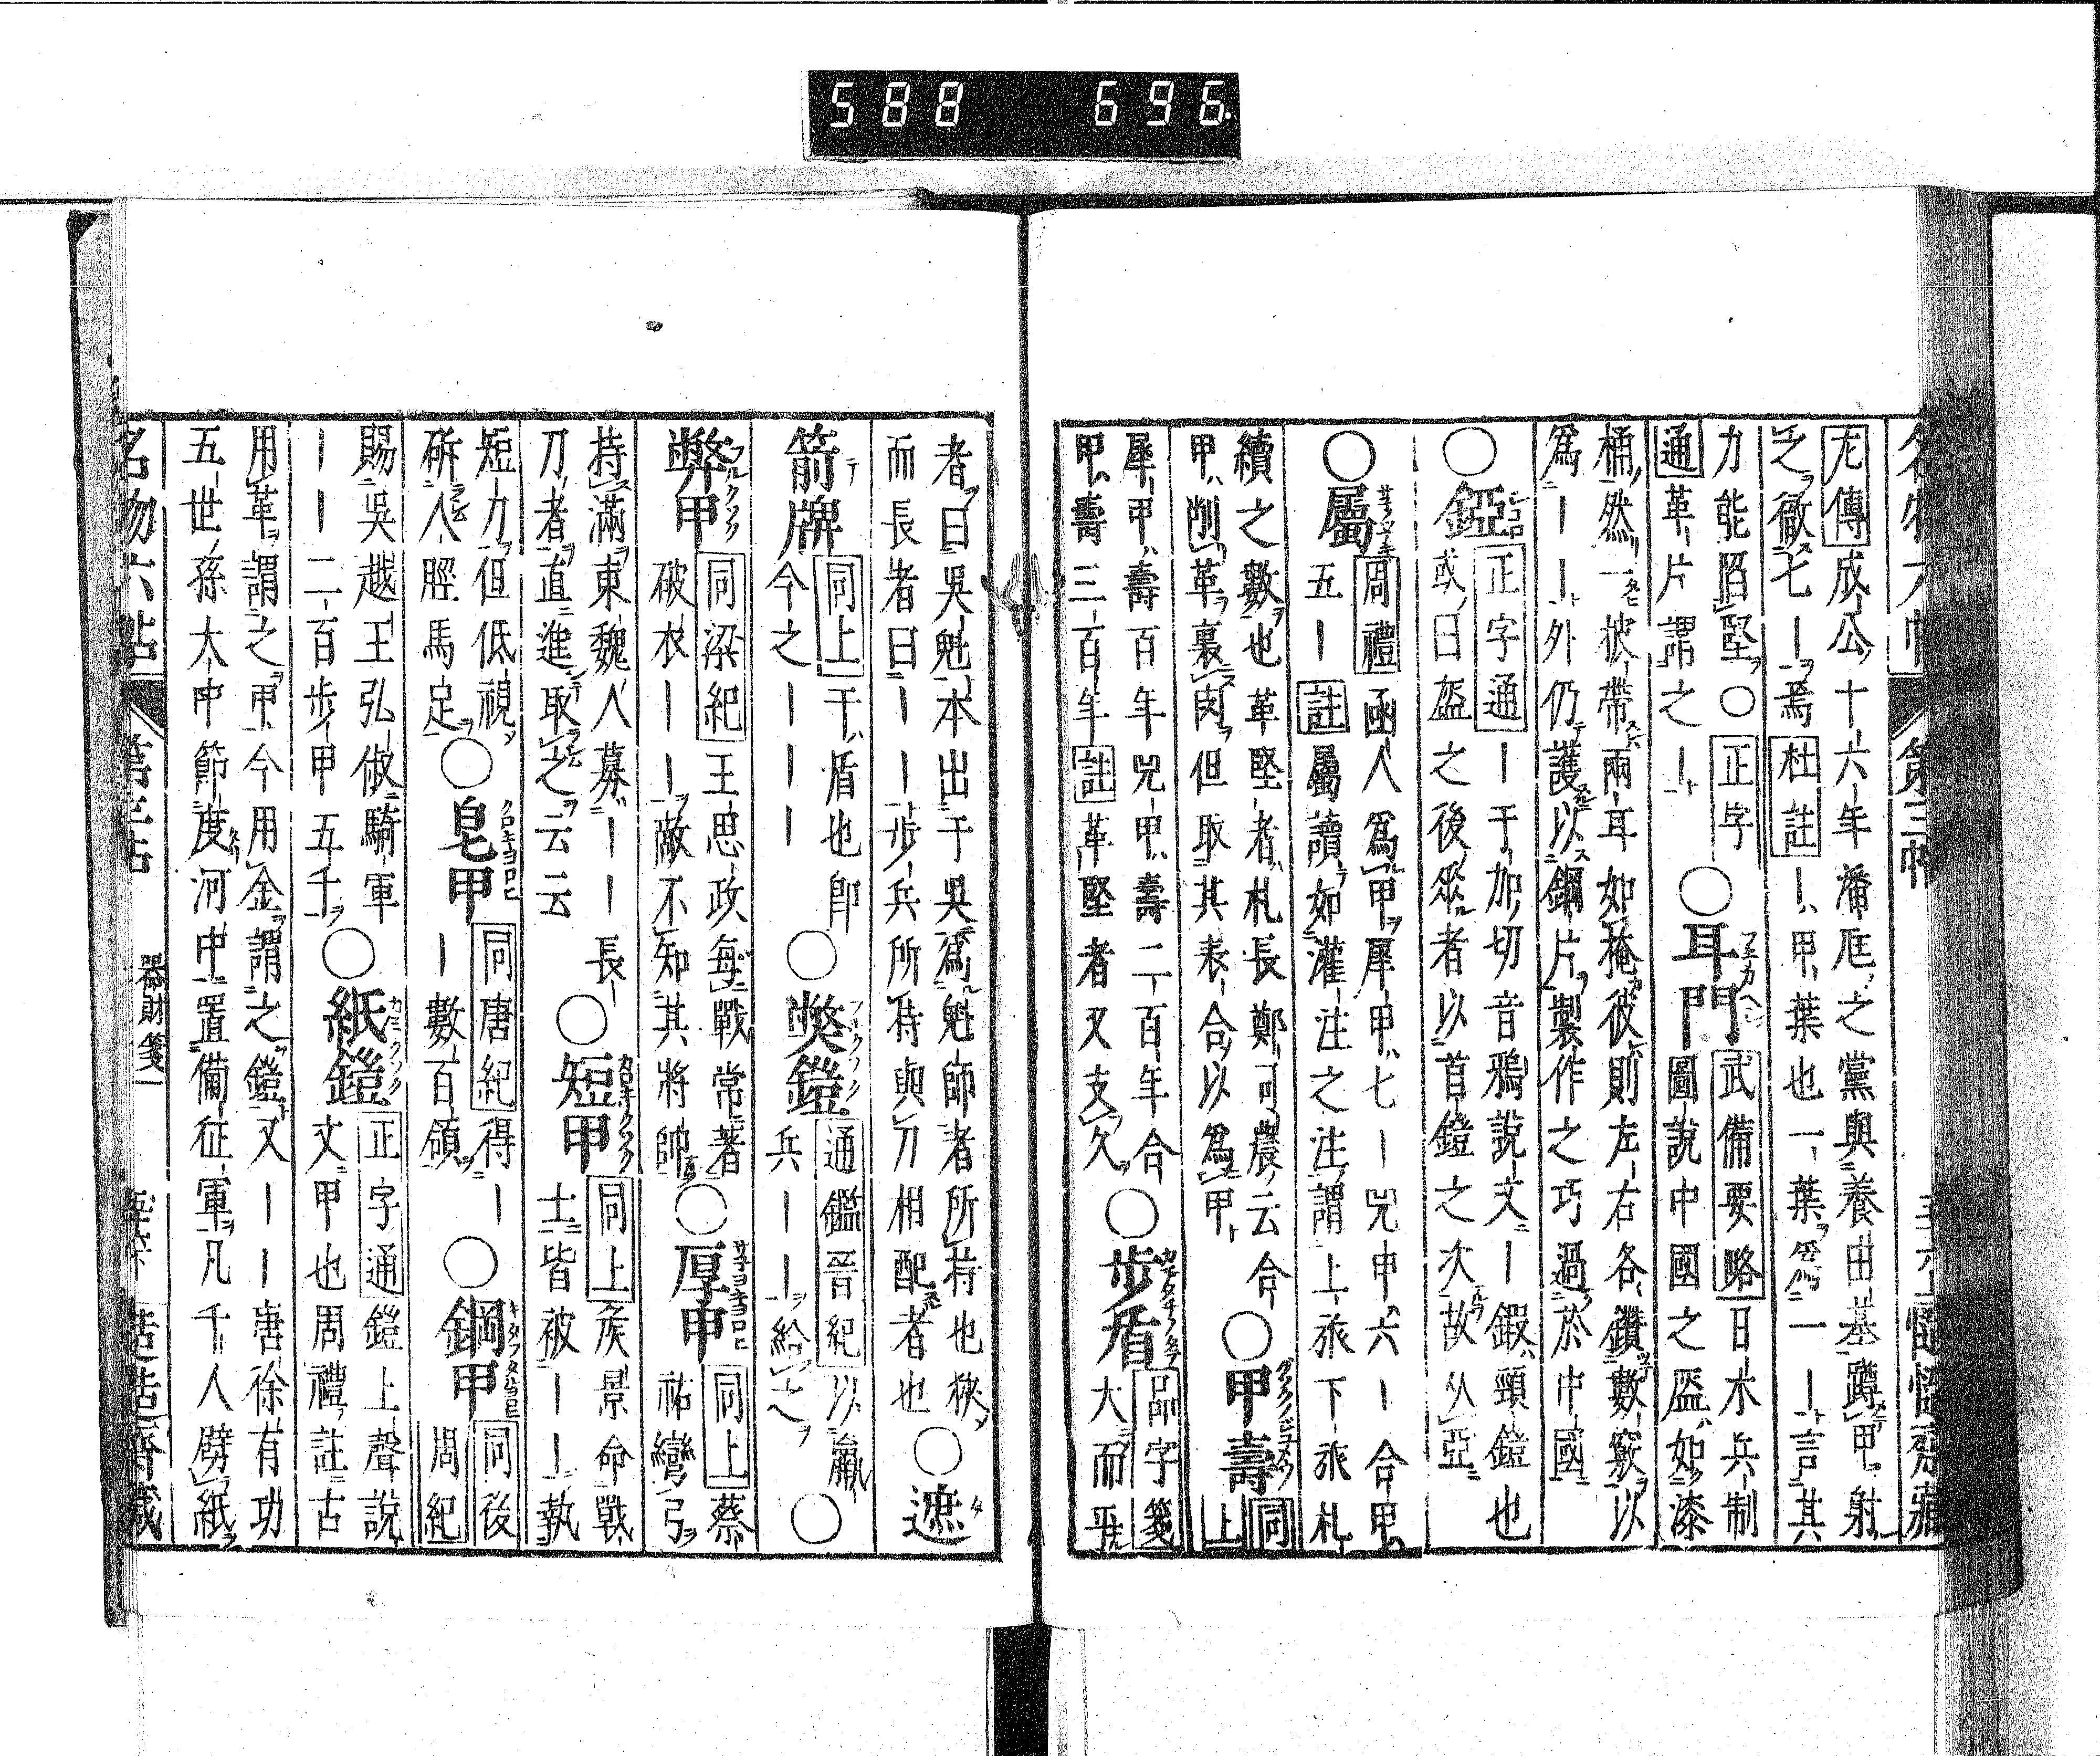 588 696
名物六帖 第三帖
左傳成公十六年潘尫之黨與養由基蹲甲射
之徹七ー焉杜註ー甲葉也一葉爲一ー言其
力能陷堅○正字
通革片謂之ー
○耳門
武備要略日本兵制
圖說中國之盔如漆
桶然一披帶兩耳如掩彼則左右各鑽數竅以
爲ーー外仍護以鋼片製作之巧過於中國
○錏
正字通ー于加切音鴉說文ー鍜頸鎧也
或曰盔之後垂者以首鎧之次故从亞
○屬
周禮函人爲甲犀甲七ー兕甲六ー合甲
五ー註屬讀如灌注之注謂上旅下旅札
續之數也革堅者札長鄭司農云合
甲削革裏肉但取其表合以爲甲
○甲壽
同上
犀甲壽百年兕甲壽二百年合
甲壽三百年註革堅者又支久
○步盾
品字箋
大而平
者曰吳魁本出于吳爲魁師者所持也狹
而長者曰ーー步兵所持與刀相配者也
○遮
箭牌
同上干盾也卽
今之ーーー
○獘鎧
通鑑晉紀以羸
兵ーー給之
○
弊甲
同梁紀王思政每戰常著
破衣ーー敵不知其將帥
○厚甲
同上蔡
祐彎弓
持滿東魏人募ーー長
刀者直進取之云云
○短甲
同上侯景命戰
士皆被ーー執
短刀但低視
斫人脛馬足
○皂甲
同唐紀得ー
ー數百領
○鋼甲
同後
周紀
賜吳越王弘俶騎軍
ーー二百步甲五千
○紙鎧
正字通鎧上聲說
文甲也周禮註古
用革謂之甲今用金謂之鎧又ーー唐徐有功
五世孫大中節度河中置備征軍凡千人劈紙
名物六帖 第三帖 器財箋一